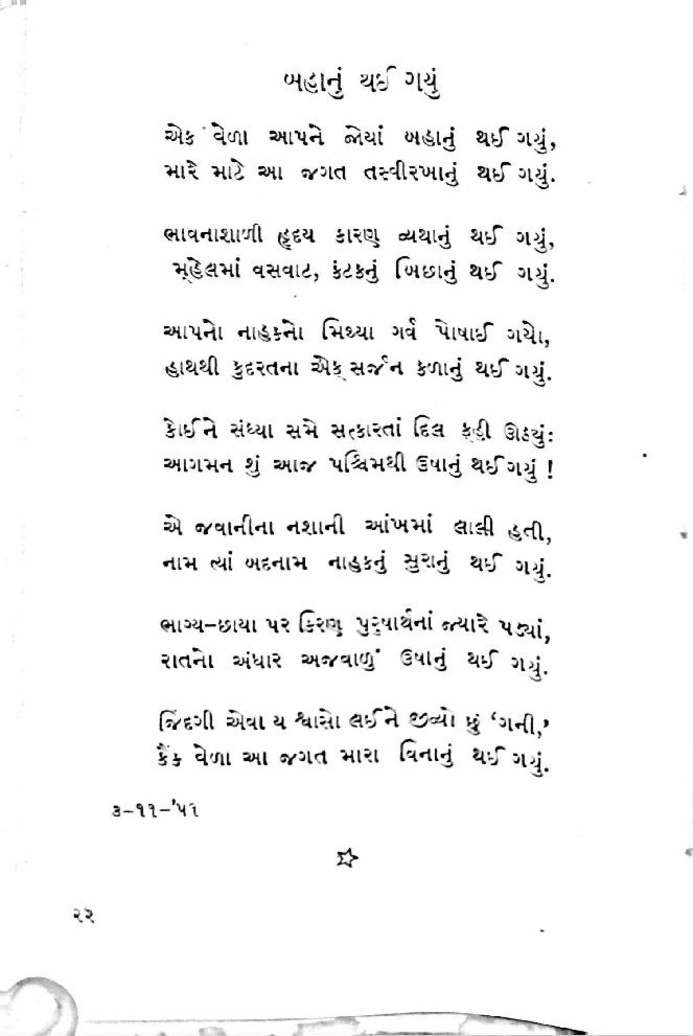 બહાનું થઈ ગયું
એક વેળા આપને જોયાં બહાનું થઈ ગયું,
મારે માટે આ જગત તસ્વીરખાનું થઈ ગયું.
ભાવનાશાળી હૃદય કારણ વ્યથાનું થઈ ગયું,
મ્હેલમાં વસવાટ, કંટકનું બિછાનું થઈ ગયું.
આપનો નાહકનો મિથ્યા ગર્વ પોષાઈ ગયો,
હાથથી કુદરતના એક સર્જન કળાનું થઈ ગયું.
કોઈને સંધ્યા સમે સત્કારતાં દિલ કહી ઊઠ્યું:
આગમન શું આજ પશ્ચિમથી ઉષાનું થઈ ગયું !
એ જવાનીના નશાની આંખમાં લાલી હતી,
નામ ત્યાં બદનામ નાહકનું સુરાનું થઈ ગયું.
ભાગ્ય-છાયા પર કિરણ પુરુષાર્થનાં જ્યારે પડ્યાં,
રાતનો અંધાર અજવાળું ઉષાનું થઈ ગયું.
જિંદગી એવા ય શ્વાસો લઈને જીવ્યો છું ‘ગની,’
કૈંક વેળા આ જગત મારા વિનાનું થઈ ગયું.
૩-૧૧-'૫૧
૨૨